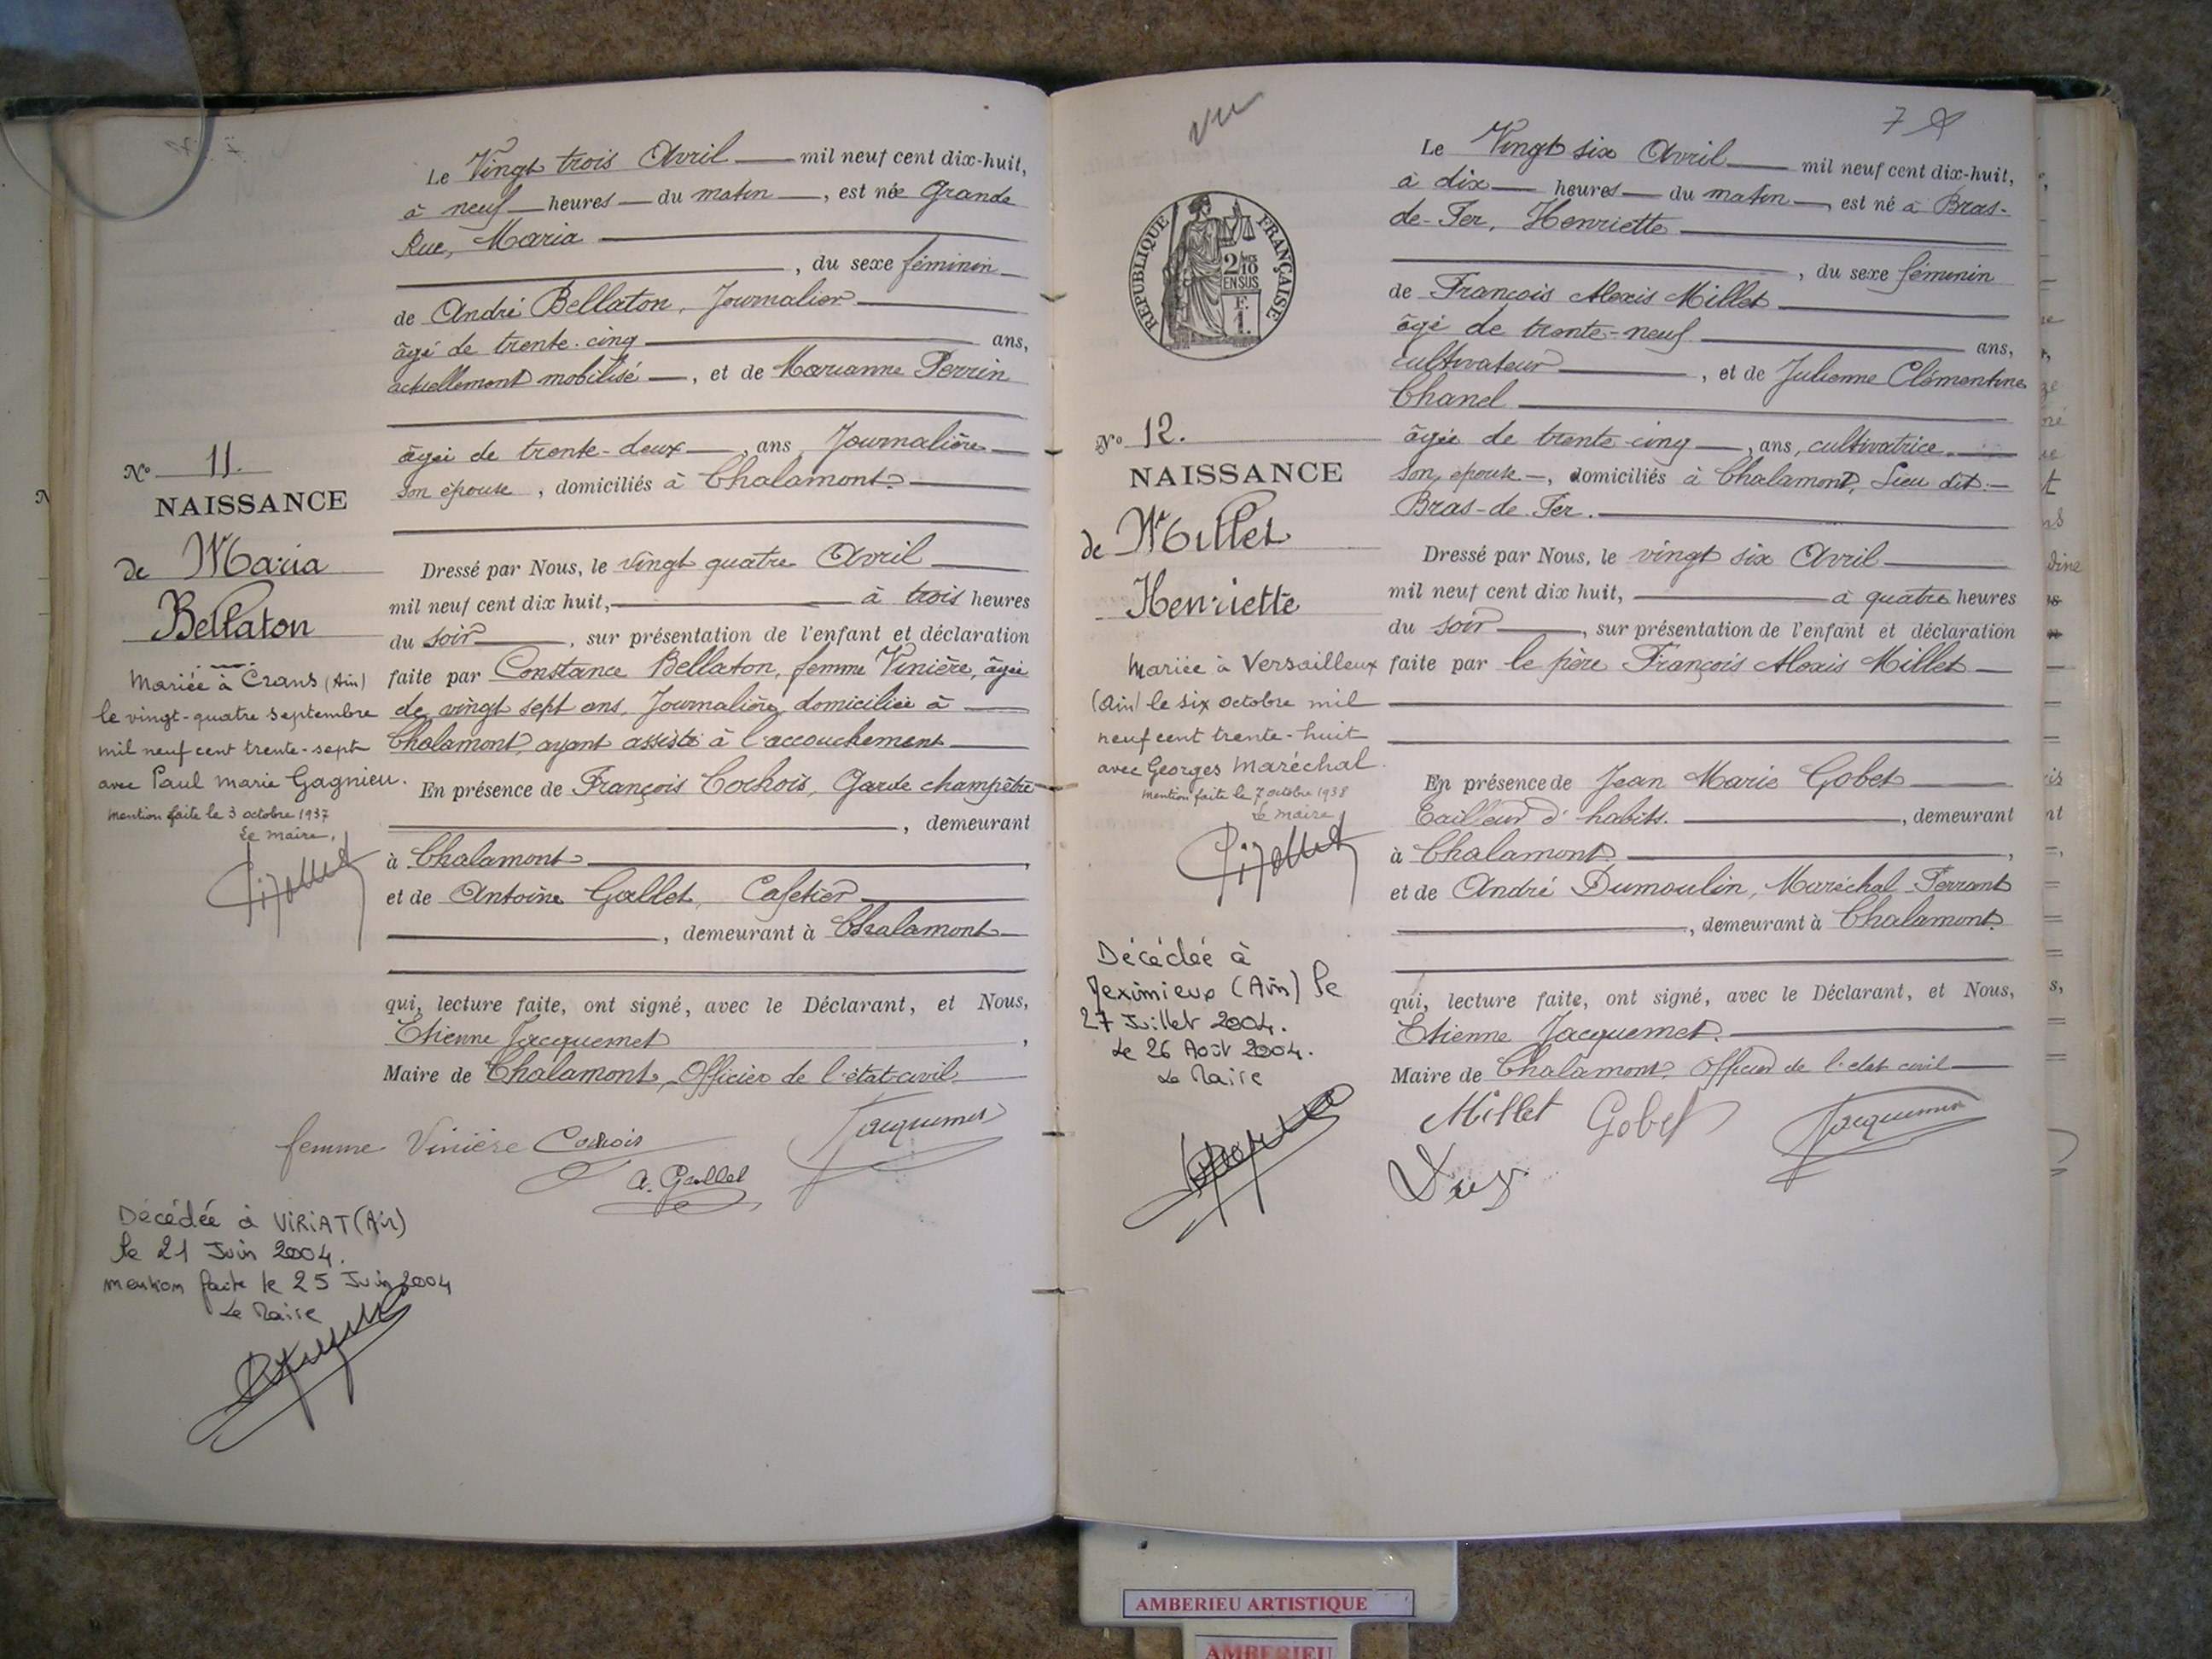 Le Vingt trois Avril mil neuf cent dix-huit,
à neuf heures du matin, est née Grande
Rue, Maria
, du sexe féminin
de André Bellaton, Journalier
âgé de trente-cinq ans,
actuellement mobilisé, et de Marianne Perrin
âgée de trente-deux, ans Journalière
son épouse, domiciliés à Chalamont.
No 11.
NAISSANCE
de Maria
Bellaton
Dressé par Nous, le vingt quatre Avril
mil neuf cent dix huit, à trois heures
du soir, sur présentation de l'enfant et déclaration
faite par Constance Bellaton, femme Vinière, âgée
de vingt sept ans, Journalière, domiciliée à
Chalamont, ayant assisté à l'accouchement
En présence de François Cochois, Garde champêtre
, demeurant
à Chalamont,
et de Antoine Gallet, Cafetier
, demeurant à Chalamont
qui, lecture faite, ont signé, avec le Déclarant, et Nous,
Etienne Jacquemet,
Maire de Chalamont, Officier de l'état-civil
femme Vinière Cochois Jacquemet
A. Gallet
Mariée à Crans (Ain)
le vingt-quatre septembre
mil neuf cent trente-sept
avec Paul Marie Gagnieu.
Mention faite le 3 octobre 1937
Le maire,
Décédée à VIRIAT (Ain)
le 21 Juin 2004.
mention faite le 25 Juin 2004
Le Maire
vu
7
Le Vingt six Avril mil neuf cent dix-huit,
à dix heures du matin, est né à Bras-
de-Fer, Henriette
, du sexe féminin
de François Alexis Millet
âgé de trente-neuf ans,
cultivateur, et de Julienne Clémentine
Chanel
âgée de trente-cinq, ans, cultivatrice
son épouse, domiciliés à Chalamont, Lieu dit
Bras-de-Fer.
REPUBLIQUE FRANÇAISE
2/10
EN SUS
F.
1.
No 12.
NAISSANCE
de Millet
Henriette
Dressé par Nous, le vingt six Avril
mil neuf cent dix huit, à quatre heures
du soir, sur présentation de l'enfant et déclaration
faite par le père François Alexis Millet
En présence de Jean Marie Gobet
Tailleur d'habits., demeurant
à Chalamont,
et de André Dumoulin, Maréchal-Ferrant
, demeurant à Chalamont.
qui, lecture faite, ont signé, avec le Déclarant, et Nous,
Etienne Jacquemet.
Maire de Chalamont, Officier de l'état civil
Millet Gobet Jacquemet
Mariée à Versailleux
(Ain) le six octobre mil
neuf cent trente-huit
avec Georges Maréchal.
Mention faite le 7 octobre 1938
Le maire,
Décédée à
Meximieux (Ain) le
27 Juillet 2004.
Le 26 Août 2004.
Le Maire
AMBERIEU ARTISTIQUE
AMBERIEU